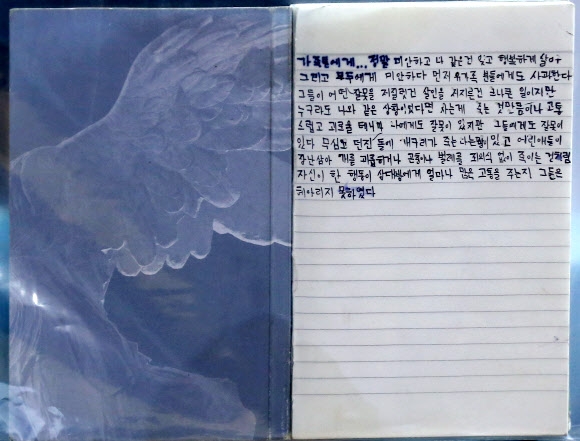 가족들에게... 정말 미안하고 나 같은건 잊고 행복하게 살아
그리고 모두에게 미안하다 먼저 유가족 분들에게도 사과한다
그들이 어떤 잘못을 저질렀건 살인을 저지른건 크나큰 일이지만
누구라도 나와 같은 상황이었다면 사는게 죽는 것만큼이나 고통
스럽고 괴로울 테니까 나에게도 잘못이 있지만 그들에게도 잘못이
있다 무심코 던진 돌에 개구리가 죽는다는말이 있고 어린애들이
장난삼아 개를 괴롭히거나 곤충이나 벌레를 죄의식 없이 죽이는 것처럼
자신이 한 행동이 상대방에게 얼마나 많은 고통을 주는지 그들은
헤아리지 못하였다